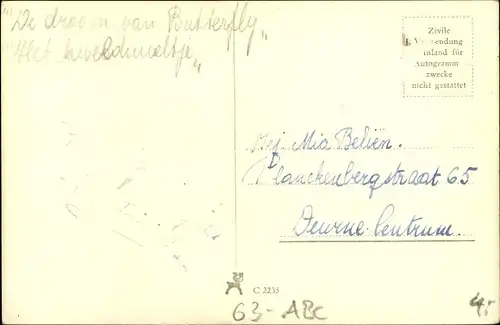 "De droom van Butterfly"
"Het
Zivile
Verwendung
inland für
Autogramm-
zwecke
nicht gestattet
Mej. Mia Beliën.
Planckenbergstraat 65
Deurne-Centrum.
C 2235
63-ABC
4,-